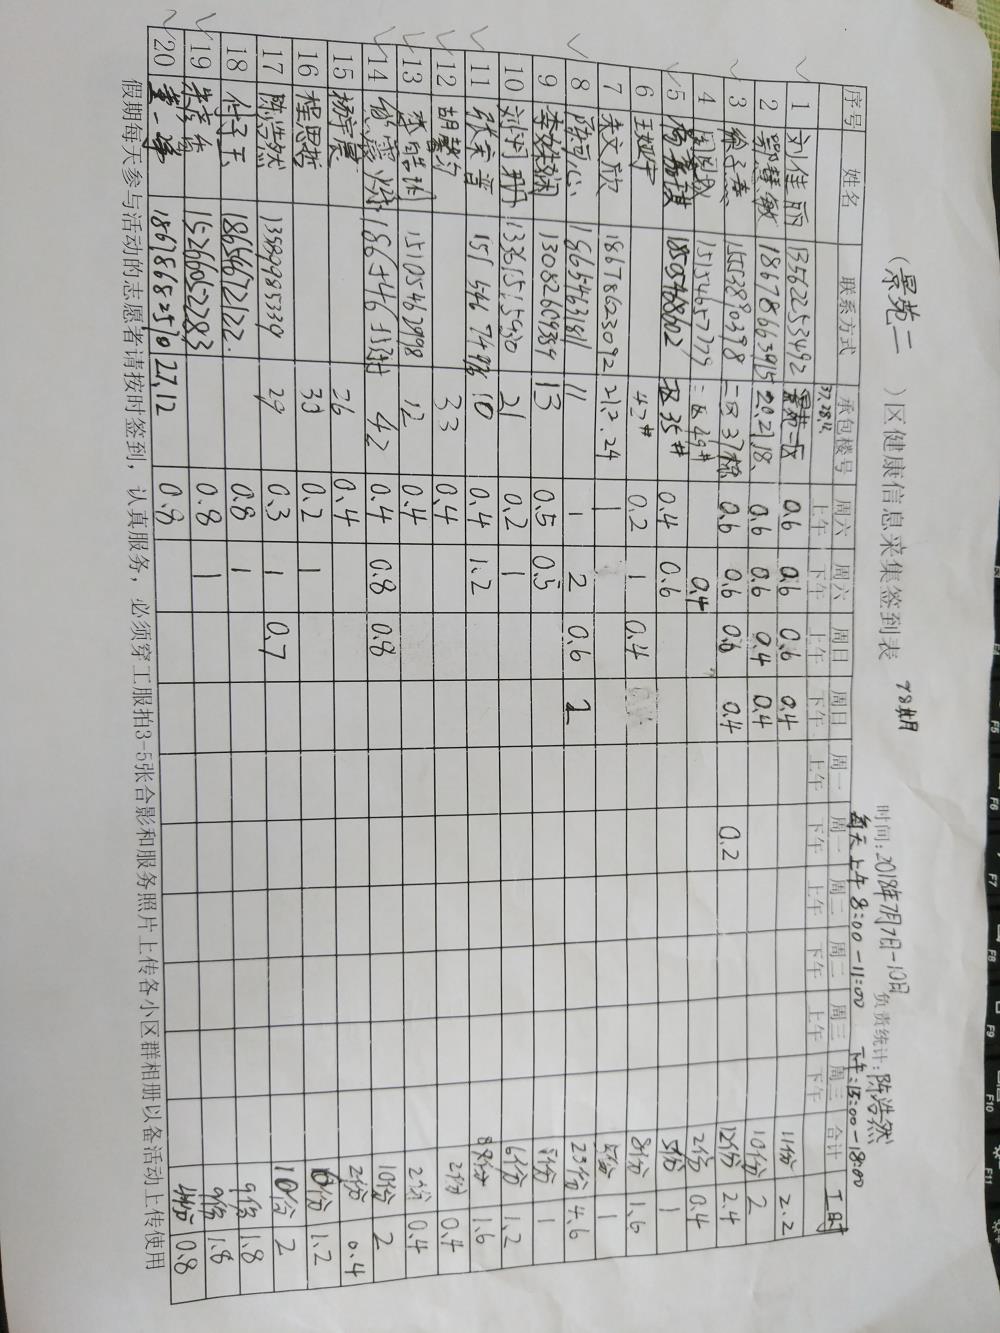 （景苑二 ）区健康信息采集签到表 78期
时间：2018年7月7日-10日 负责统计：陈浩然
每天上午8:00-11:00 下午：15:00-18:00
序号 姓名 联系方式 承包楼号 周六上午 周六下午 周日上午 周日下午 周一上午 周一下午 周二上午 周二下午 周三上午 周三下午 合计 工时
1 刘佳丽 13562253492 景苑二区 37.28.12 0.6 0.6 0.6 0.4 11份 2.2
2 鄂慧敏 18678663915 20.21.18. 0.6 0.6 0.4 0.4 10份 2
3 徐子燕 15552890398 二区37栋 0.6 0.6 0.6 0.4 0.2 12份 2.4
4 15154657779 二区49# 0.4 2份 0.4
5 18505468102 35# 0.4 0.6 5份 1
6 42# 0.2 1 0.4 8份 1.6
7 朱文欣 18678623092 21.2.24 1 1
8 18665463181 11 1 2 0.6 2 23份 4.6
9 李 13082609389 13 0.5 0.5 1
10 刘 13361515930 21 0.2 1 6份 1.2
11 张宗晋 15154674976 10 0.4 1.2 8份 1.6
12 胡馨 33 0.4 2份 0.4
13 李皓 15105463998 12 0.4 2份 0.4
14 42 0.4 0.8 0.8 10份 2
15 杨宇晨 26 0.4 2份 0.4
16 程思哲 33 0.2 1 6份 1.2
17 陈浩然 13589985339 29 0.3 1 0.7 10份 2
18 付子玉 18654672122. 0.8 1 9份 1.8
19 朱彦 15266052283 0.8 1 9份 1.8
20 董一 18678682579 27.12 0.8 4份 0.8
假期每天参与活动的志愿者请按时签到，认真服务，必须穿工服拍3-5张合影和服务照片上传各小区群相册以备活动上传使用
F5
F6
F7
F8
F9
F10
F11